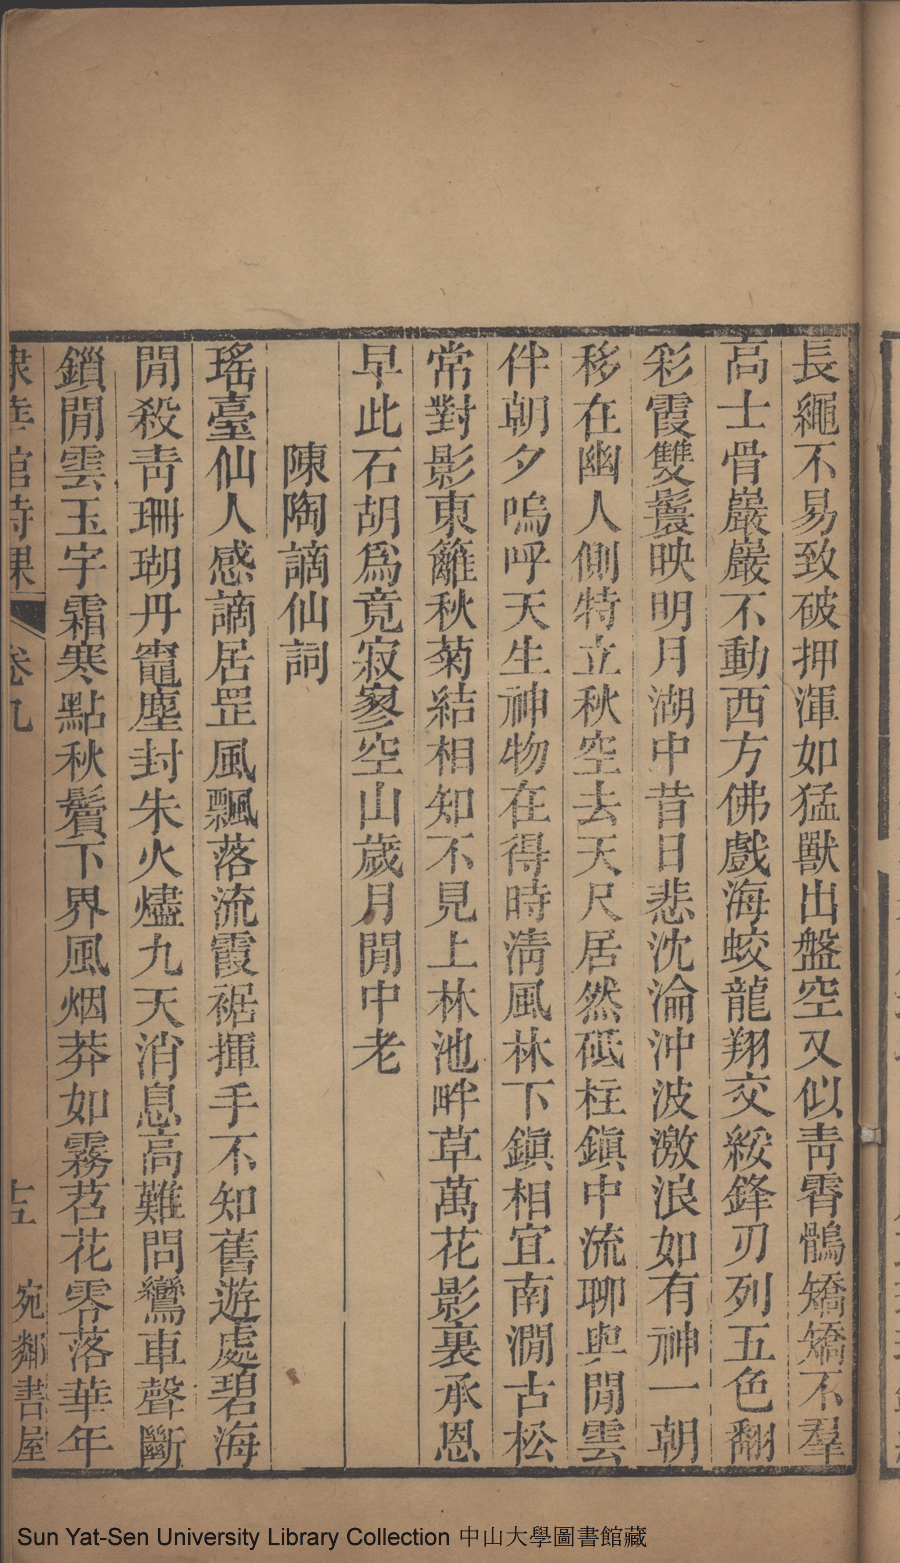 長繩不易致破押渾如猛獸出盤空又似靑霄鶻矯矯不羣
高士骨巖巖不動西方佛戲海蛟龍翔交綏鋒刃列五色翻
彩霞雙鬟映明月湖中昔日悲沈淪沖波激浪如有神一朝
移在幽人側特立秋空去天尺居然砥柱鎭中流聊與閒雲
伴朝夕嗚呼天生神物在得時淸風林下鎭相宜南澗古松
常對影東籬秋菊結相知不見上林池畔草萬花影裏承恩
早此石胡爲竟寂寥空山歲月閒中老
陳陶謫仙詞
瑤臺仙人感謫居罡風飄落流霞裾揮手不知舊遊處碧海
閒殺靑珊瑚丹竈塵封朱火燼九天消息高難問鸞車聲斷
鎖閒雲玉宇霜寒點秋鬢下界風烟莽如霧苕花零落華年
棣華館詩課 卷九 十五 宛鄰書屋
Sun Yat-Sen University Library Collection 中山大學圖書館藏